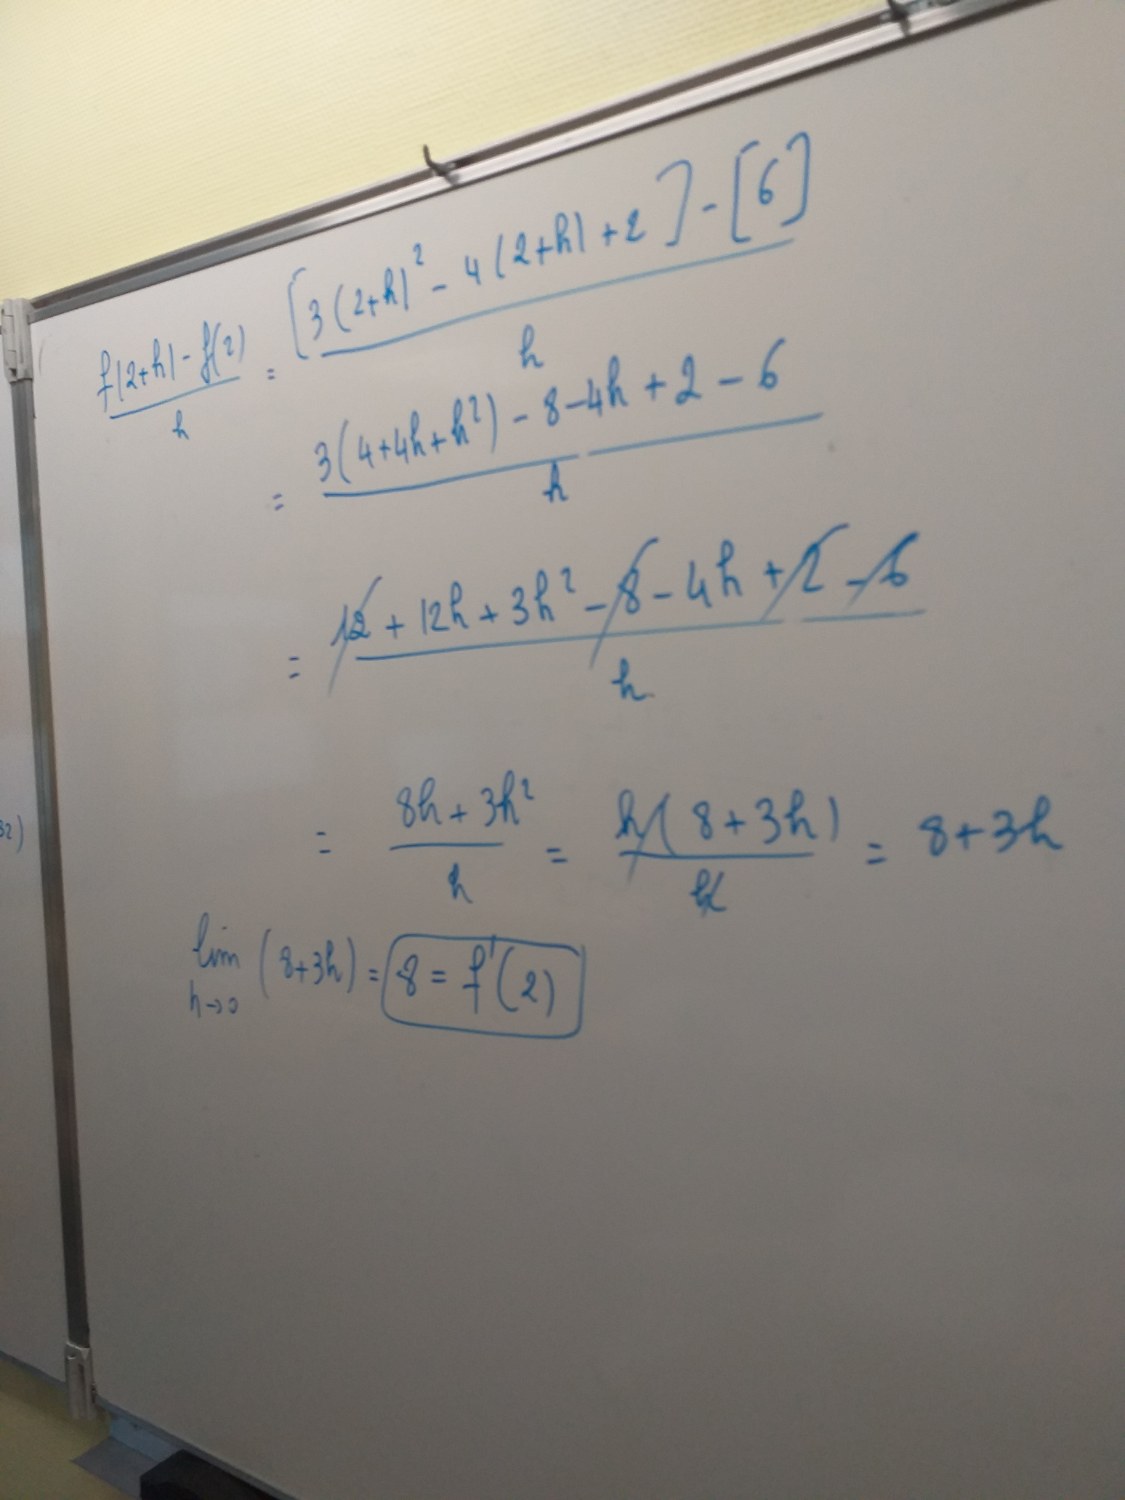 f(2+h) - f(2) / h = [3(2+h)² - 4(2+h) + 2] - [6] / h
= 3(4+4h+h²) - 8 - 4h + 2 - 6 / h
= 12 + 12h + 3h² - 8 - 4h + 2 - 6 / h
= 8h + 3h² / h = h(8+3h) / h = 8+3h
lim h→0 (8+3h) = 8 = f'(2)